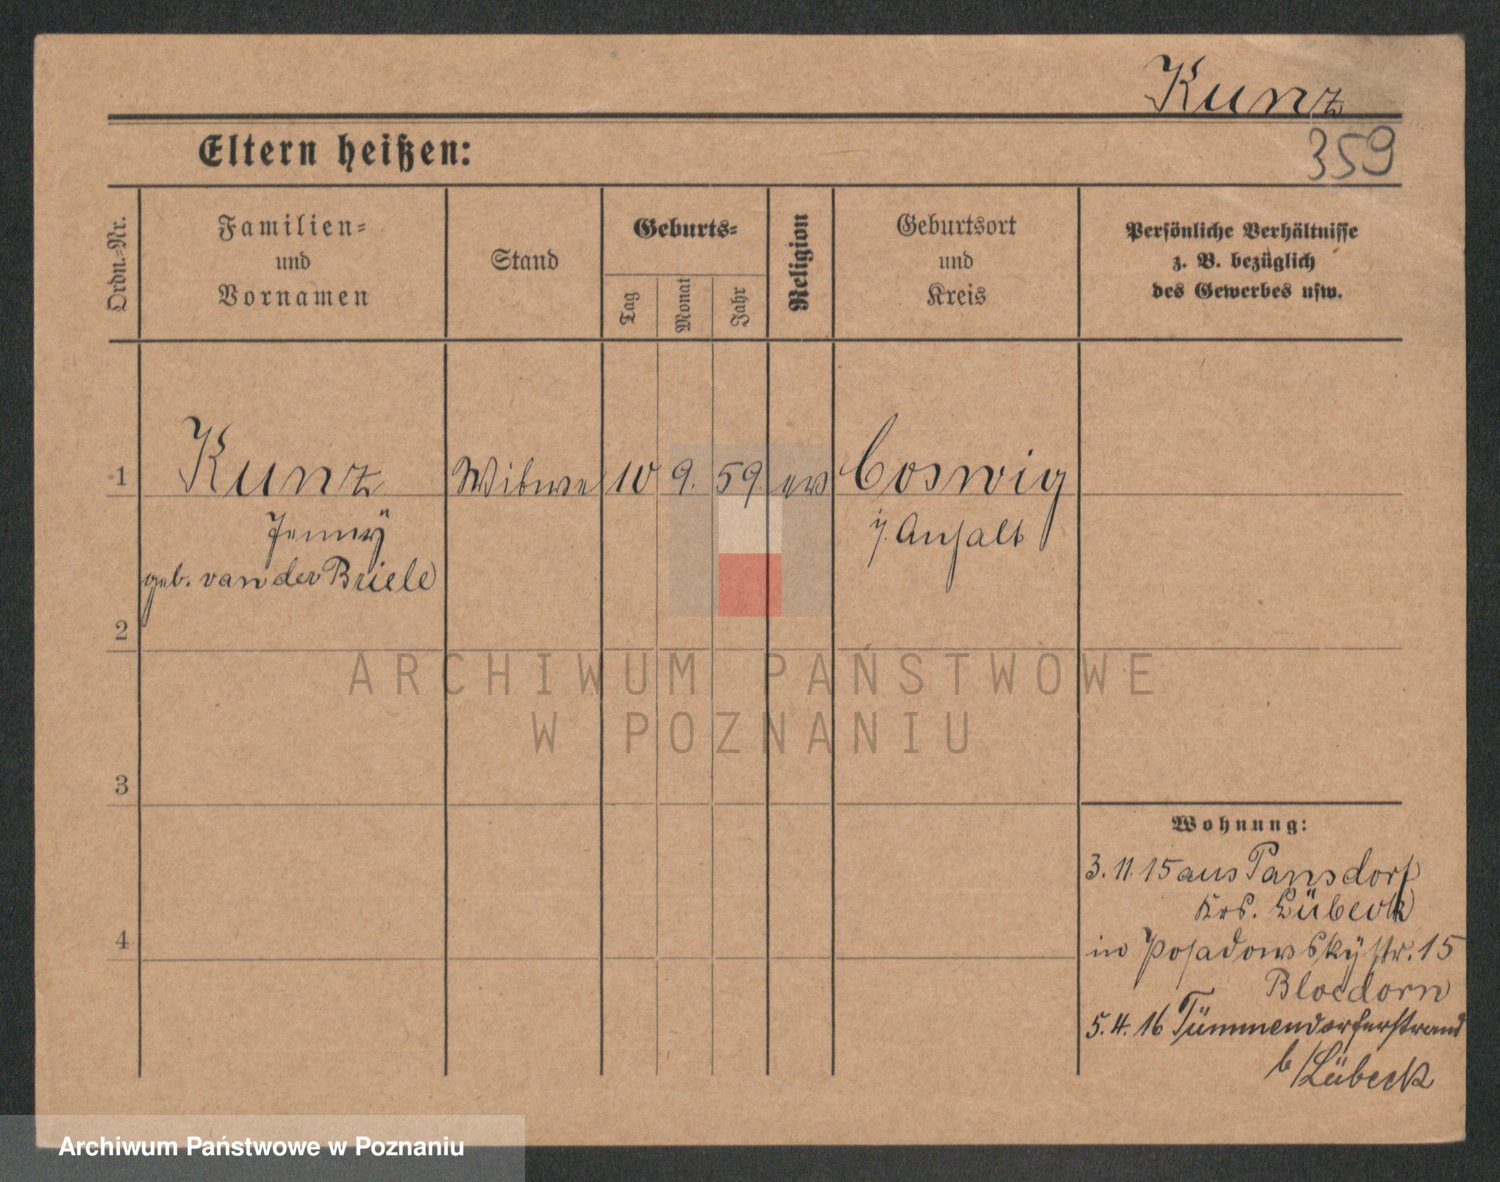 Kunz
359
Eltern heißen:
Ordn.=Nr.
Familien=
und
Vornamen
Stand
Geburts=
Tag
Monat
Jahr
Religion
Geburtsort
und
Kreis
Persönliche Verhältnisse
z. B. bezüglich
des Gewerbes usw.
1 Kunz Witwe 10 9. 59. ev Coswig
Jenny i/ Anhalt
geb. van der Briele
2
ARCHIWUM PAŃSTWOWE
W POZNANIU
3
Wohnung:
3. 11. 15 aus Pansdorf
Krs. Lübeck
4
in Posadowskystr. 15
Bloedorn
5. 4. 16 Tümmendorferstrand
b/Lübeck
Archiwum Państwowe w Poznaniu